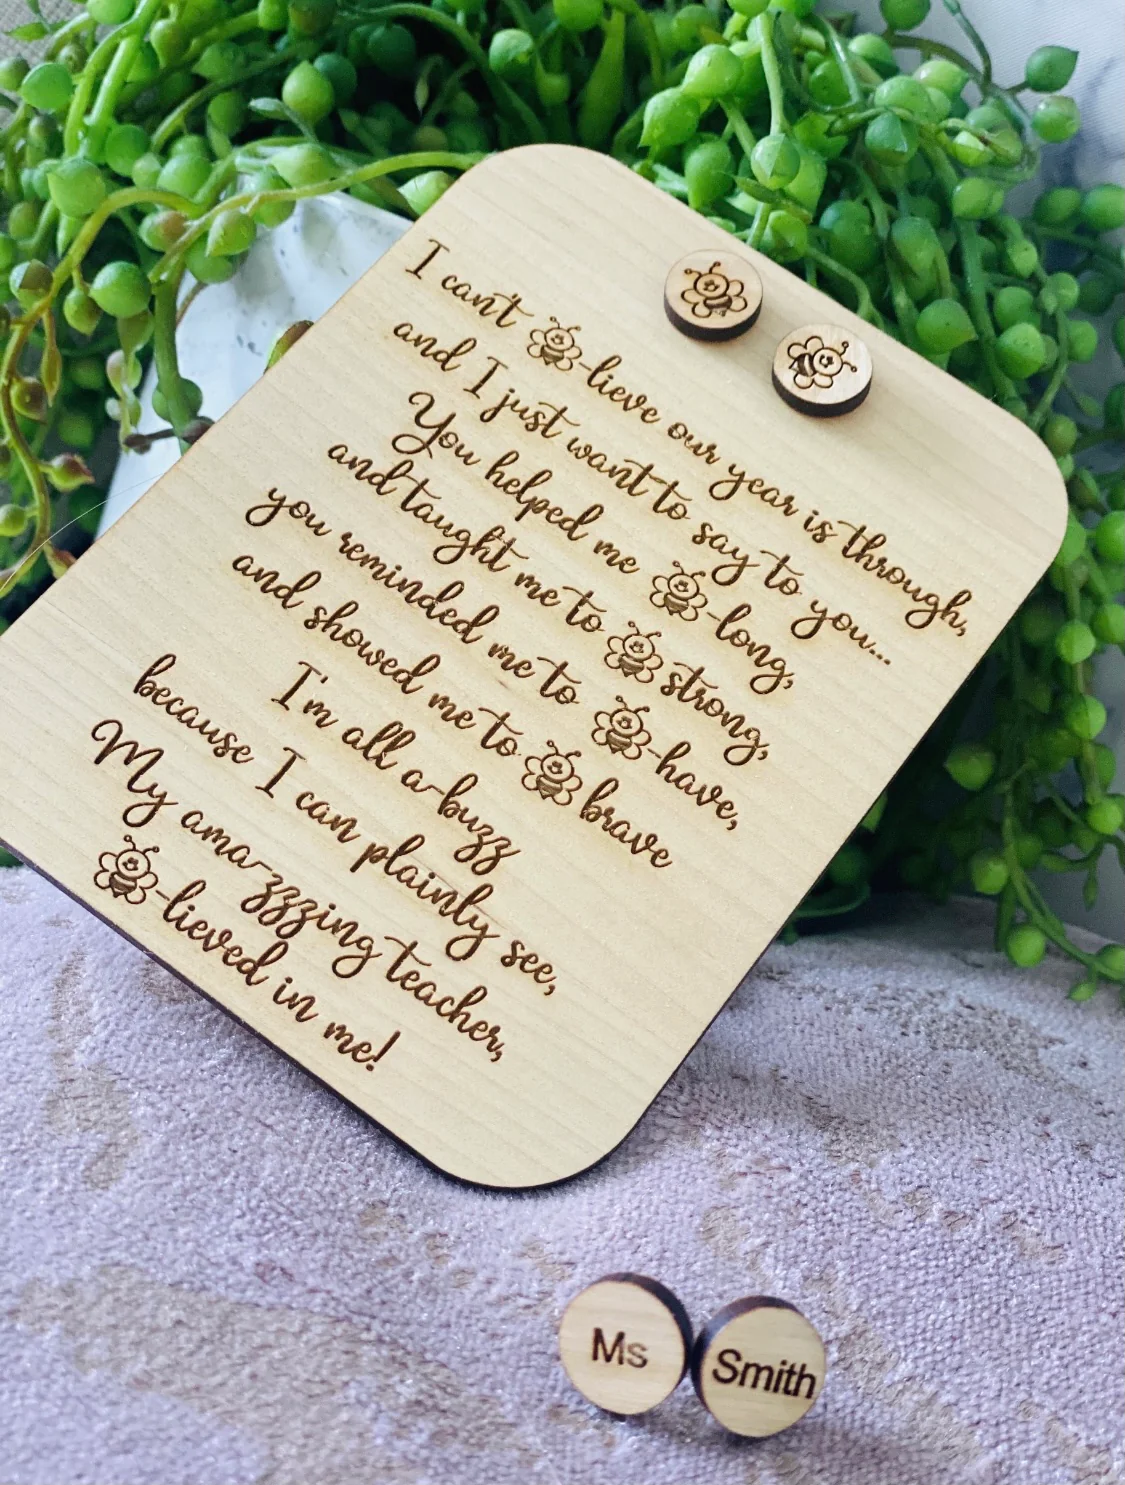 I can't -lieve our year is through,
and I just want to say to you...
You helped me -long,
and taught me to strong,
you reminded me to -have,
and showed me to brave
I'm all a-buzz
because I can plainly see,
My ama-zzzing teacher,
-lieved in me!
Ms
Smith